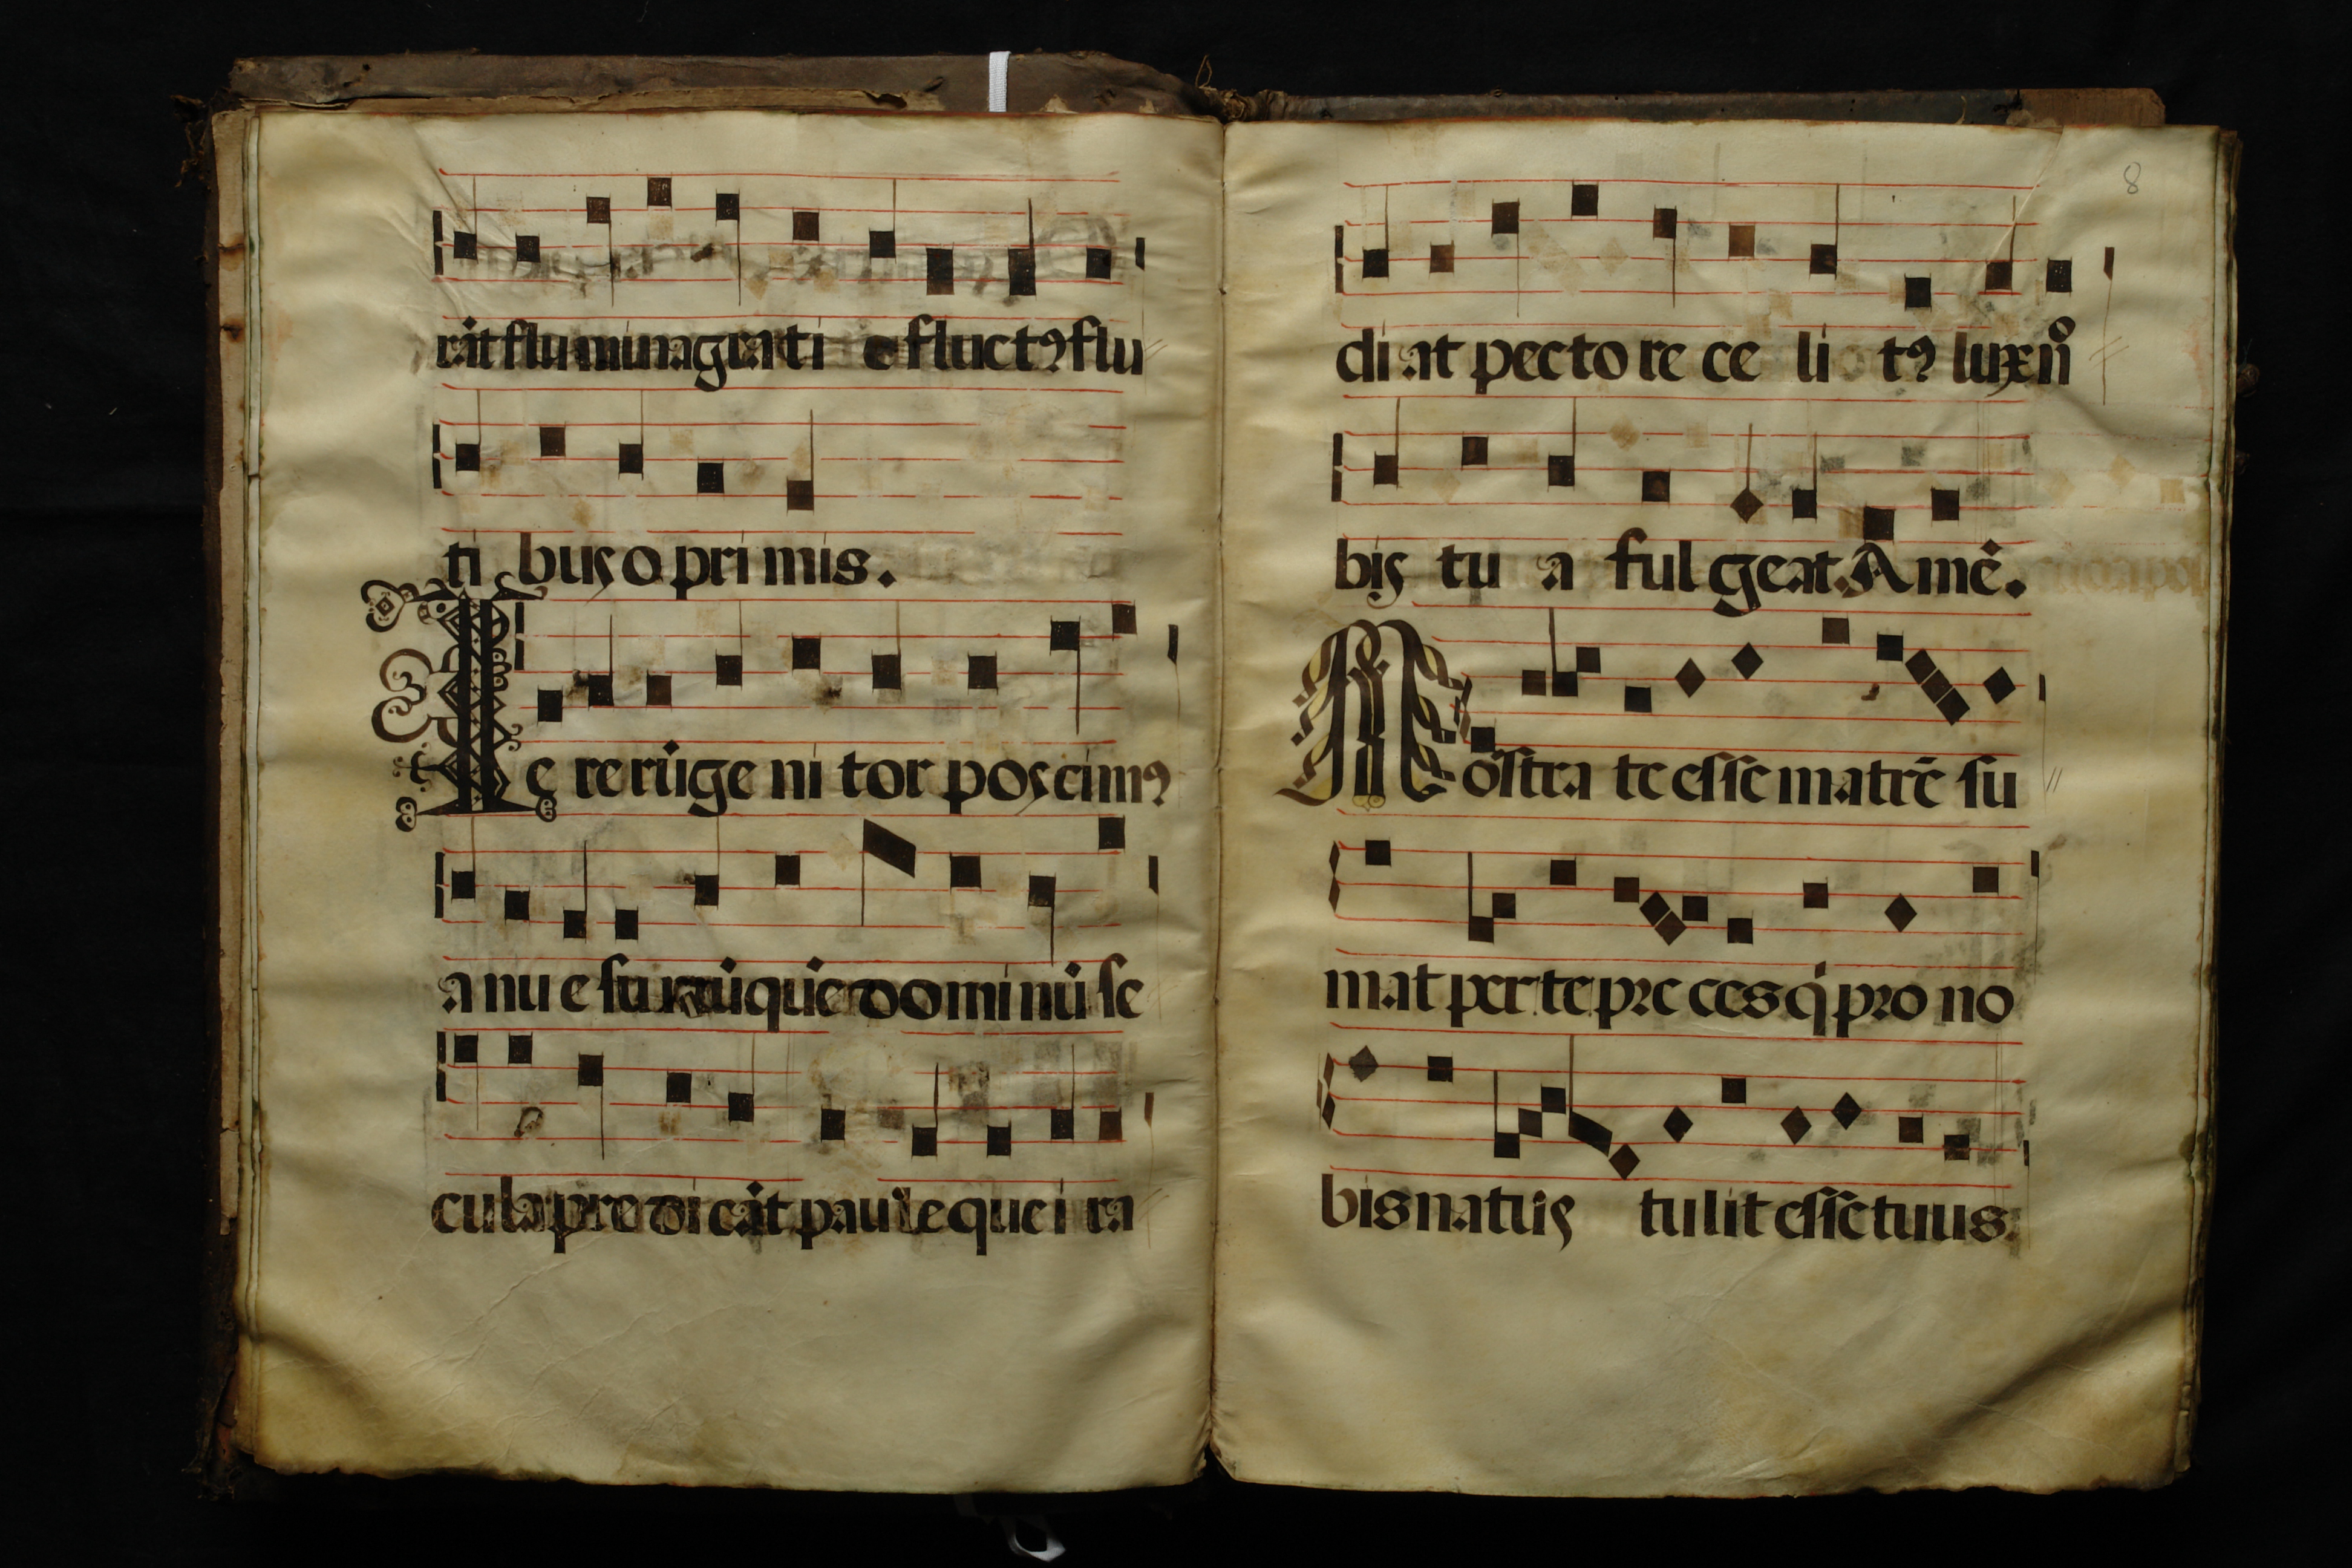 rāt flumina grati e fluctꝰ flu
ti bus o primis.
Te rerū genitor poscimꝰ
a nu e fu rāuque dominū se
cula predicāt paule que i ra
8
diat pectore celi tꝰ lux nº
bis tu a fulgeat. Amē.
Mostra te esse matrē su
mat per te preces q̇ pro no
bis natus tulit esse tuus